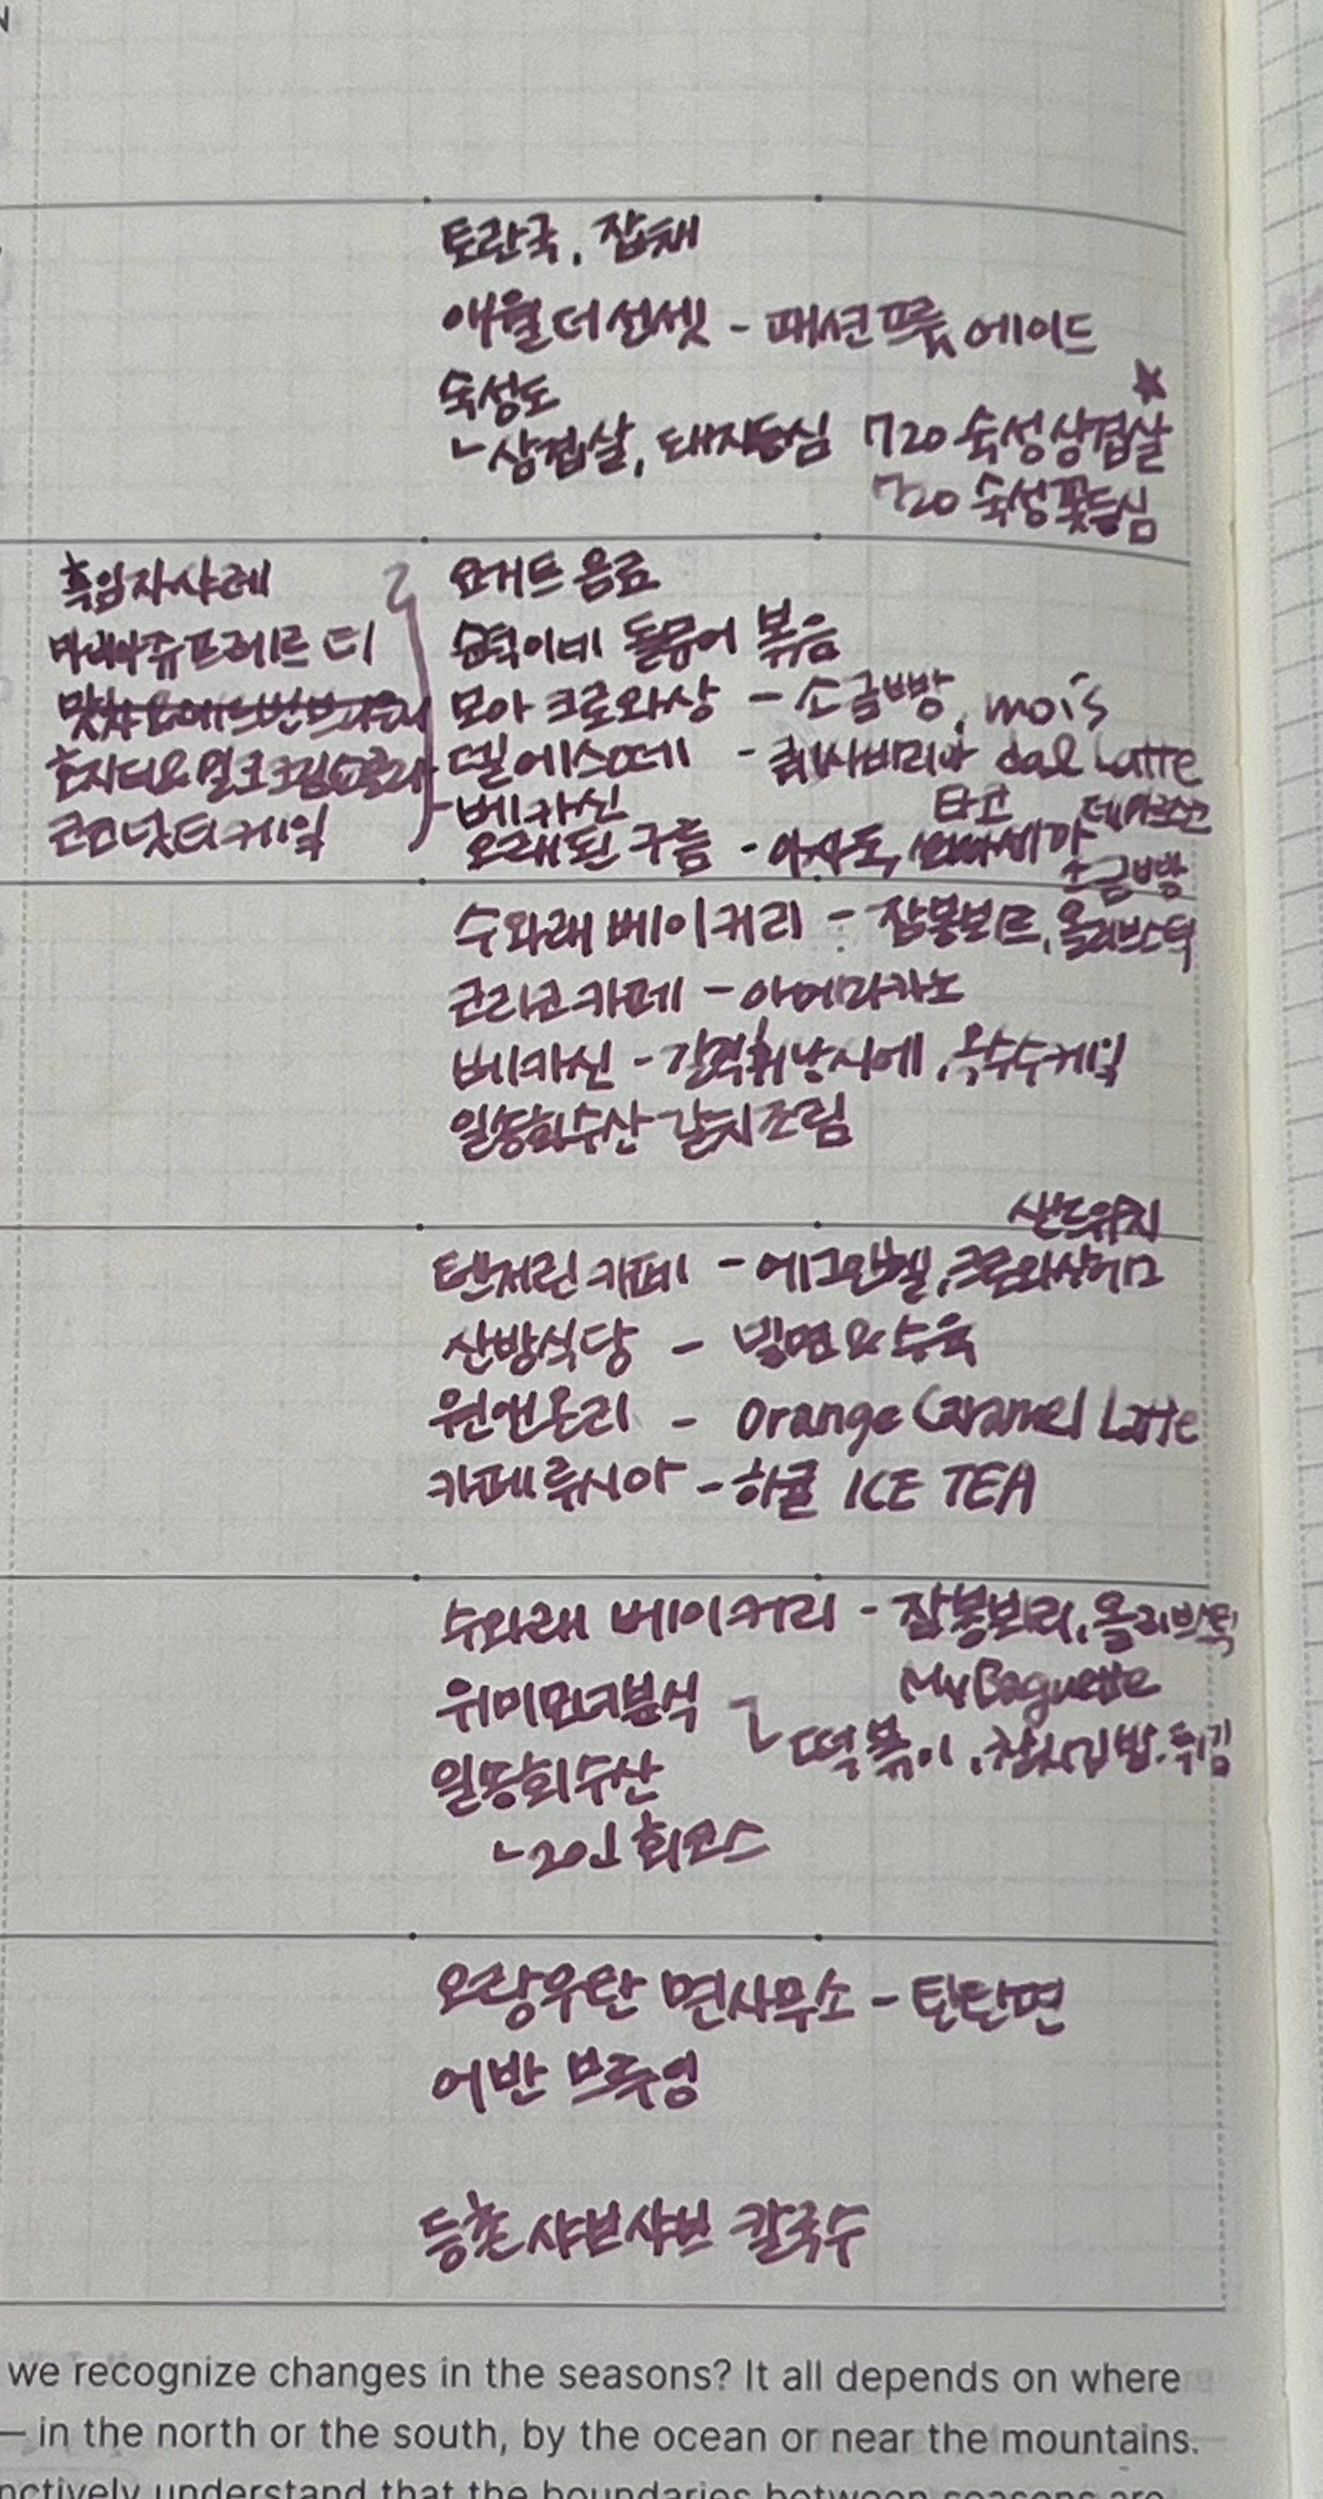 토란국, 잡채
애월더선셋 - 패션프룻 에이드
숙성도
ㄴ삼겹살, 돼지등심 720 숙성삼겹살
720 숙성꽃등심
흑임자사레
마리아쥬프레르 티
코코넛티케잌
요거트 음료
순덕이네 돌문어 볶음
모아 크로와상 - 소금빵, moi's
델에스떼 - dal Latte
베카신
타코
오래된 구름 - 아사도,
소금빵
수와래 베이커리 - 잠봉뵈르, 올리브스틱
코리코카페 - 아메리카노
베카신 - 옥수수케잌
일뜽회수산 갈치조림
샌드위치
텐저린카페 - 에그앤헬, 크로와상에그
산방식당 - 밀면&수육
원앤온리 - Orange Caramel Latte
카페루시아 - 하귤 ICE TEA
수와래 베이커리 - 잠봉뵈르, 올리브스틱
My Baguette
위미모녀분식
떡볶이, 참치김밥, 튀김
일뜽회수산
ㄴ2인 회코스
오랑우탄 면사무소 - 탄탄면
어반 브루잉
등촌샤브샤브 칼국수
we recognize changes in the seasons? It all depends on where
— in the north or the south, by the ocean or near the mountains.
nctively understand that the boundaries between seasons are